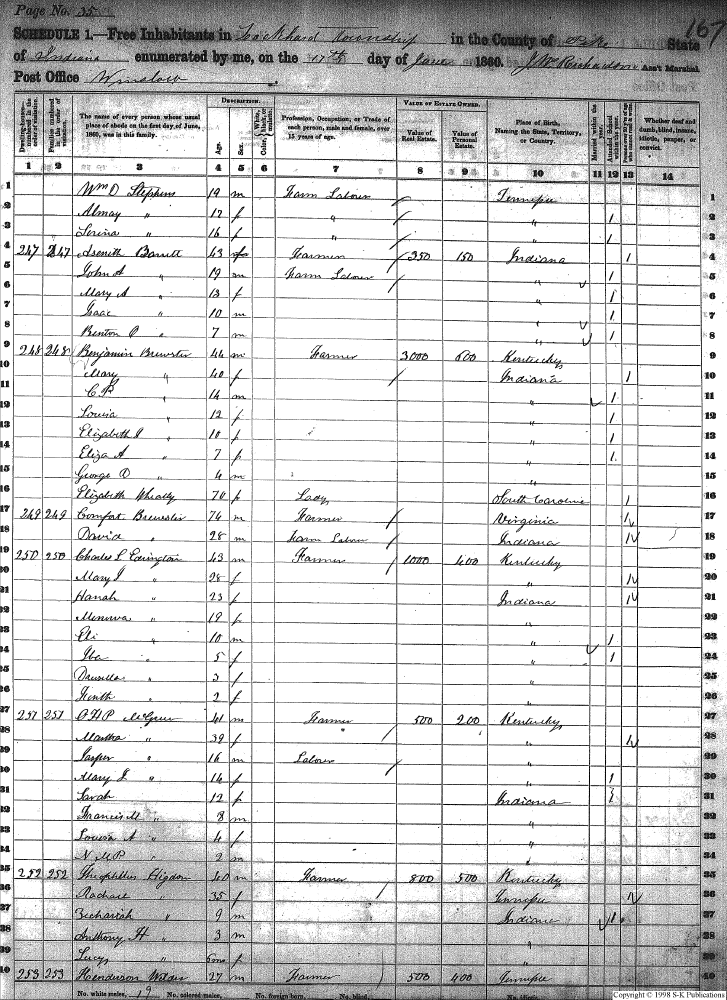 Page No. 35
167
SCHEDULE 1.—Free Inhabitants in Lockhard Township in the County of Pike State
of Indiana enumerated by me, on the 11th day of June 1860. J W Richardson Ass't Marshal.
Post Office Winslow
DESCRIPTION.
VALUE OF ESTATE OWNED.
Dwelling-houses—numbered in the order of visitation.
Families numbered in the order of visitation.
The name of every person whose usual place of abode on the first day of June, 1860, was in this family.
Age.
Sex.
Color, White, black, or mulatto.
Profession, Occupation, or Trade of each person, male and female, over 15 years of age.
Value of Real Estate.
Value of Personal Estate.
Place of Birth, Naming the State, Territory, or Country.
Married within the year.
Attended School within the year.
Whether deaf and dumb, blind, insane, idiotic, pauper, or convict.
1 2 3 4 5 6 7 8 9 10 11 12 13 14
1 Wm D Stephens 19 m Farm Laborer Tennessee 1
2 Almay " 12 f " " 1 2
3 " 16 f " " 1 3
4 247 247 Aseneth Barrett 43 f Farmer 350 150 Indiana 1 4
5 John A " 19 m Farm Laborer " 1 5
6 Mary A " 13 f " 1 6
7 Isaac " 10 m " 1 7
8 Benton P " 7 m " 1 8
9 248 248 Benjamin Brewster 44 m Farmer 3000 600 Kentucky 9
10 Mary " 40 f Indiana 1 10
11 C P " 14 m " 1 11
12 Louisa " 12 f " 1 12
13 Elizabeth J " 10 f " 1 13
14 Eliza A " 7 f " 1 14
15 George D " 4 m " 15
16 Elizabeth 70 f Lady South Carolina 1 16
17 249 249 Comfort Brewster 74 m Farmer Virginia 17
18 David " 28 m Farm Labour Indiana 18
19 250 250 Charles L Edrington 43 m Farmer 1000 400 Kentucky 19
20 Mary J " 28 f " 20
21 Hanah " 23 f Indiana 21
22 Minerva " 19 f " 22
23 Eli " 10 m " 1 23
24 " 5 f " 1 24
25 Drucilla " 3 f " 25
26 " 2 f " 26
27 251 251 O H P McGrew 41 m Farmer 500 200 Kentucky 27
28 Martha " 39 f " 28
29 Jasper " 16 m Laborer " 29
30 Mary J " 14 f " 1 30
31 Sarah 12 f Indiana 1 31
32 Francis M " 8 m " 32
33 Louisa A " 4 f " 33
34 N M P " 2 m " 34
35 252 252 Theophilus Higdon 40 m Farmer 800 500 Kentucky 35
36 Rachael " 35 f Tennessee 36
37 Zechariah " 9 m Indiana 1 37
38 Anthony H " 3 m " 38
39 Lucy " 6mo f " 39
40 253 253 Henderson 27 m Farmer 500 400 Tennessee 40
No. white males, 19 No. colored males, No. foreign born, No. blind,
Copyright © 1998 S-K Publications